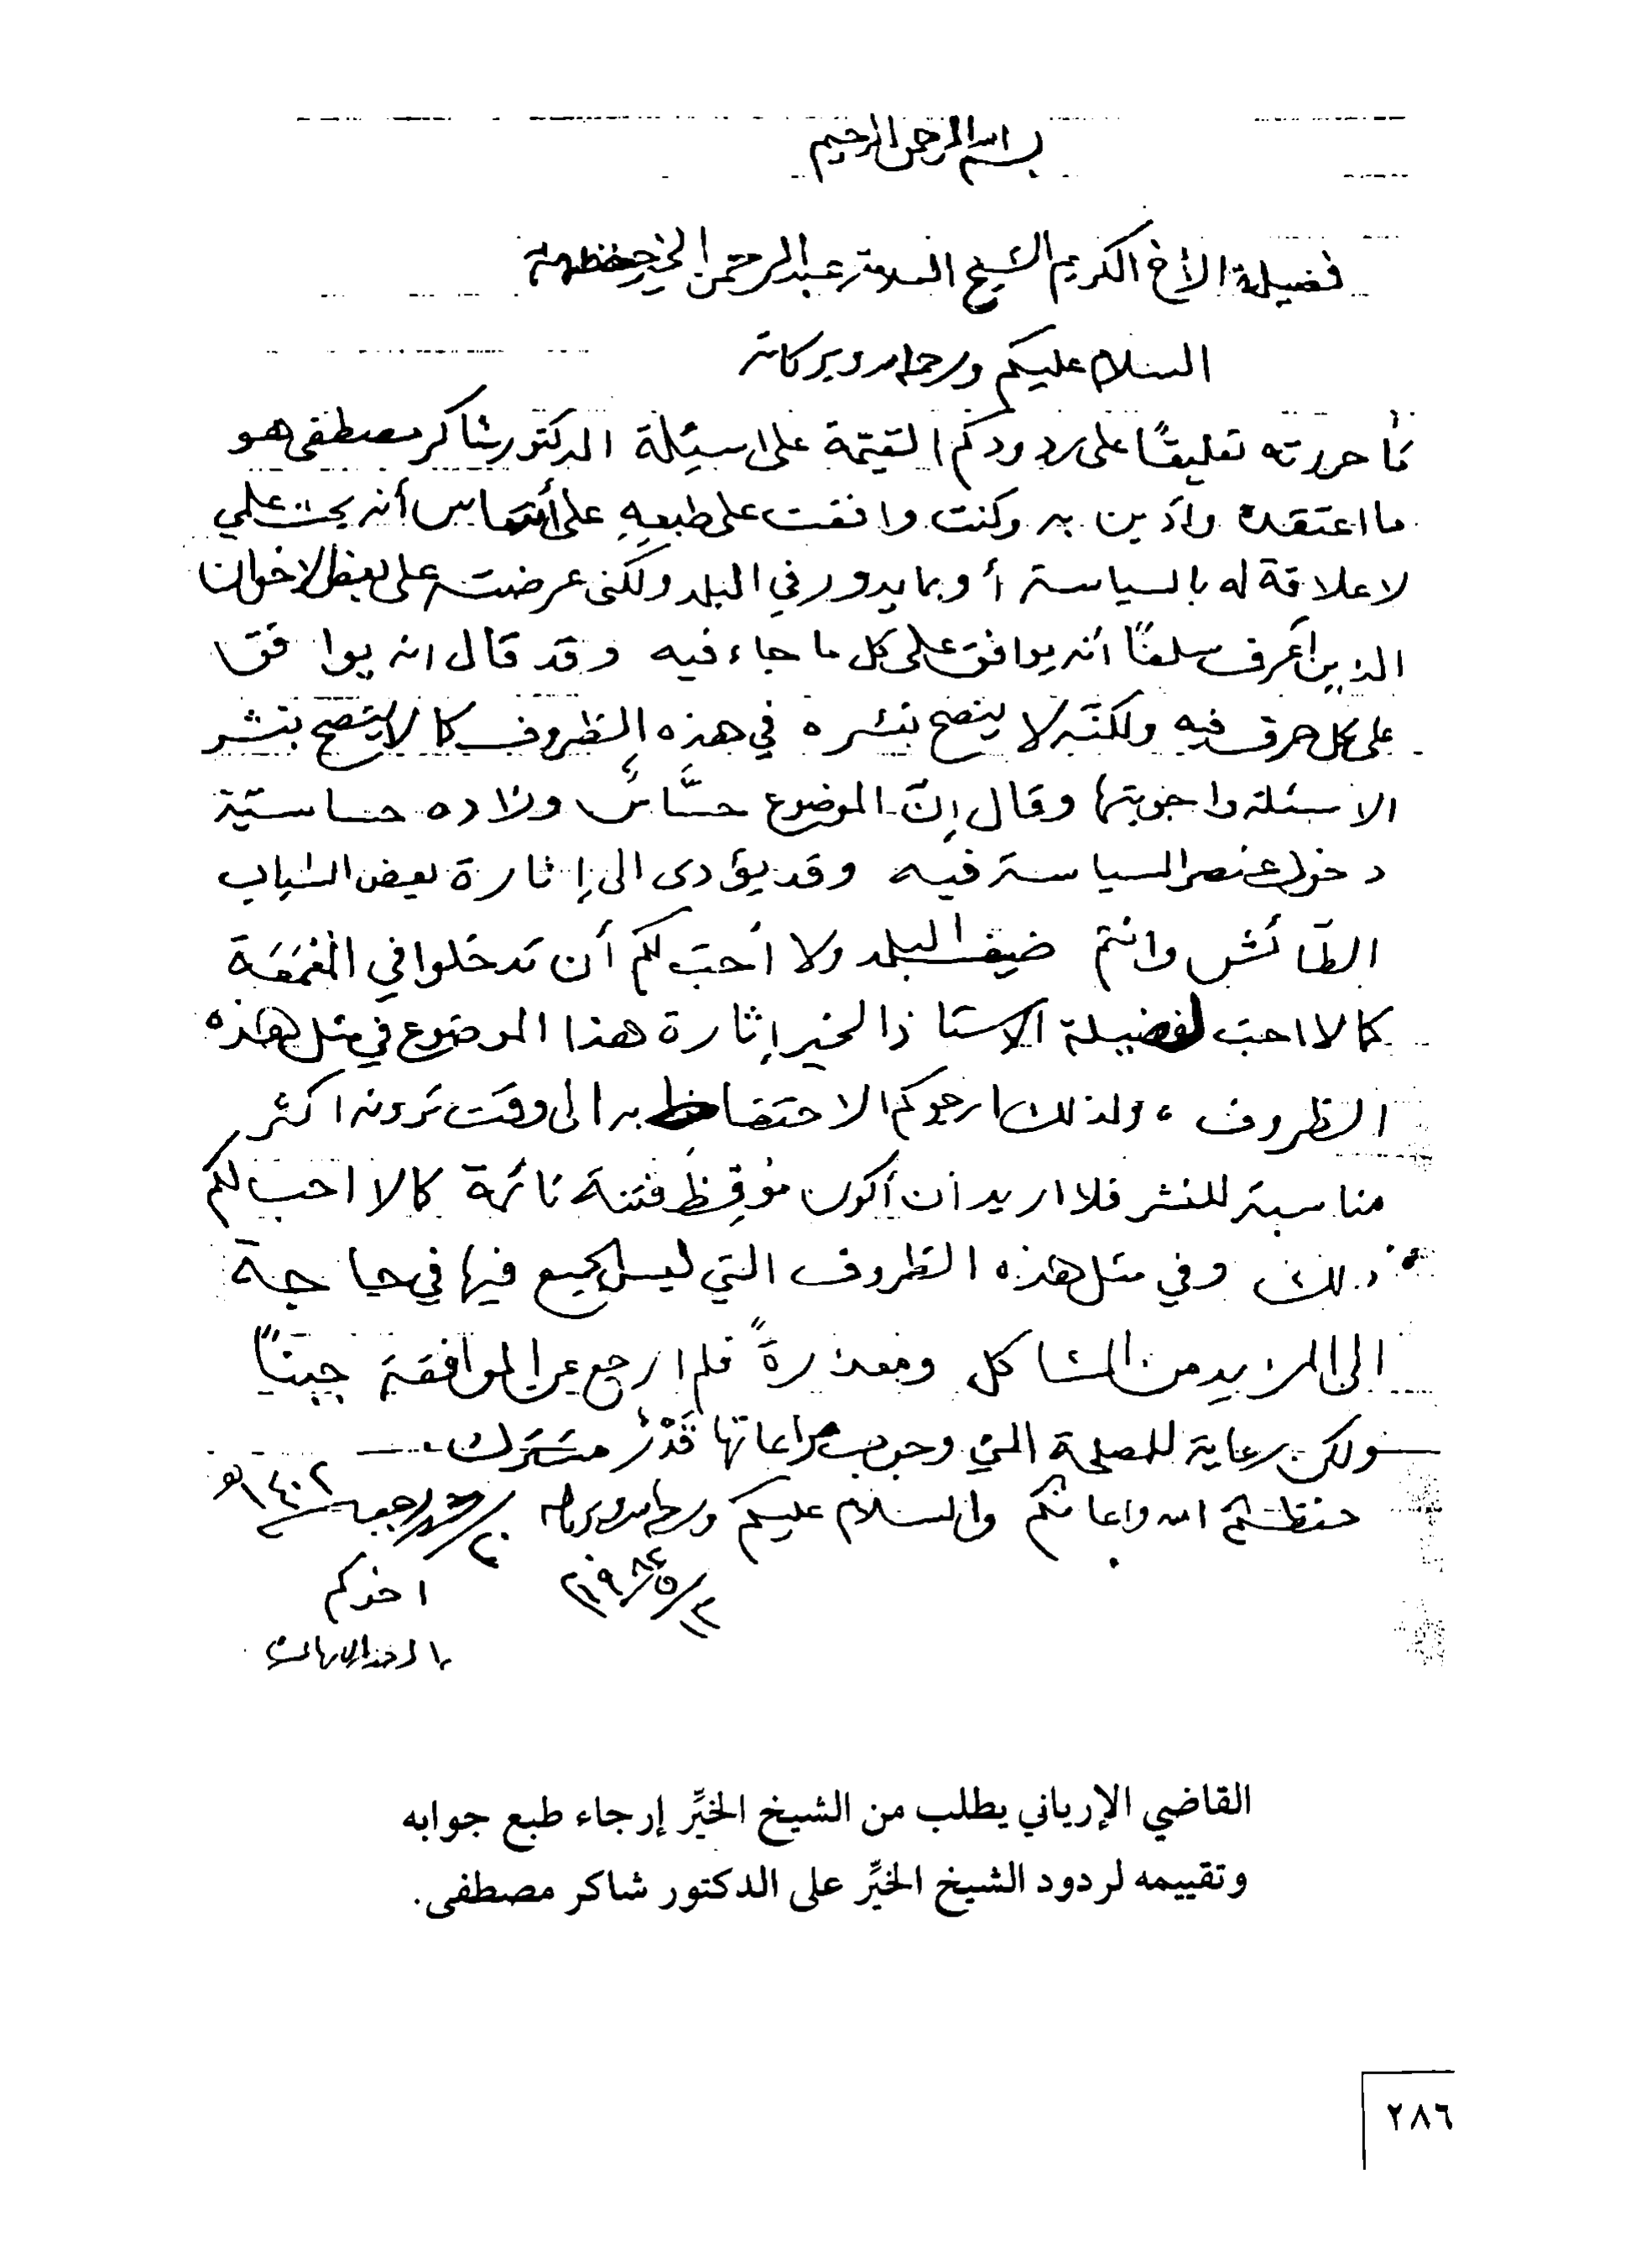 بسم الله الرحمن الرحيم
فضيلة الأخ الكريم الشيخ العلامة عبد الرحمن الخير حفظه الله
السلام عليكم ورحمة الله وبركاته
ما حررته تعليقًا على ردودكم القيّمة على اسئلة الدكتور شاكر مصطفى هو
ما اعتقده وأدين به وكنت وافقت على طبعه على أساس أنه بحث علمي
لا علاقة له بالسياسة أو بما يدور في البلد ولكنى عرضته على بعض الاخوان
الذين أعرف سلفًا أنه يوافق على كل ما جاء فيه وقد قال انه يوافق
على كل حرف فيه ولكنّه لا ينصح بنشره في هذه الظروف كما لا ينصح بنشر
الاسئلة واجوبتها وقال إنّ الموضوع حسَّاسٌ وزاده حساسيّة
دخول عنصر السياسة فيه وقد يؤدى الى إثارة بعض الشباب
الطّائش وانتم ضيف البلد ولا أحبّ لكم أن تدخلوا في المَعْمَعَة
كما لا احبّ لفضيلة الاستاذ الخير إثارة هذا الموضوع في مثل هذه
الظروف ، ولذلك ارجوكم الاحتفاظ به الى وقت ترونه اكثر
مناسبة للنشر فلا اريد أن أكون مُوقِظَ فتنة نائمة كما لا احب لكم
ذلك وفي مثل هذه الظروف التي ليس الجميع فيها في حاجة
الى المزيد من المشاكل ومعذرةً فلم ارجع عن الموافقة جبنًا
ولكن رعاية للمصلحة التي وجوب مراعاتها قَدْرٌ مشترك.
حفظكم الله واعانكم والسلام عليكم ورحمة الله وبركاته ٢٠/رجب ١٤٠٢هـ
اخوكم
القاضي الإرياني يطلب من الشيخ الخيِّر إرجاء طبع جوابه
وتقييمه لردود الشيخ الخيِّر على الدكتور شاكر مصطفى.
٢٨٦